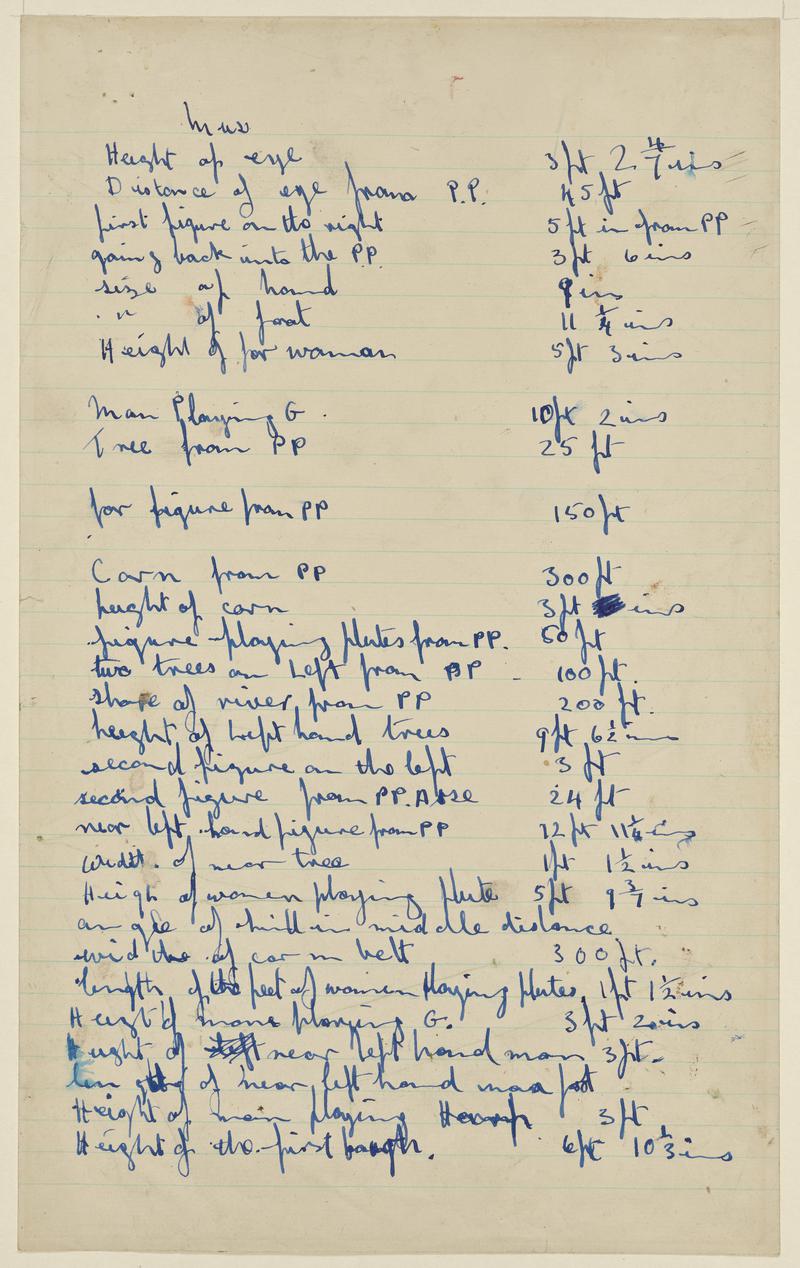 Mus
Height of eye 3ft 2 4/7 ins
Distance of eye from P.P. 45ft
first figure on the right 5ft in from PP
going back into the P.P. 3ft 6ins
size of hand 9ins
" of foot 11 1/4 ins
Height of far woman 5ft 3ins
Man Playing G. 10ft 2ins
Tree from PP 25 ft
far figure from PP 150ft
Corn from PP 300ft
height of corn 3ft ins
figure playing flutes from PP. 50ft
two trees on Left from PP - 100ft.
shore of river from PP 200 ft.
height of Left hand trees 9ft 6 1/2 ins
second figure on the left 3 ft
second figure from PP. 24 ft
near left hand figure from PP 12ft 11 1/4 ins
width. of near tree 1ft 1 1/2 ins
Heigh of women playing flute 5ft 9 3/7 ins
angle of hill in middle distance
widths of corn belt 300ft.
length of the feet of women Playing flutes. 1ft 1 1/2 ins
Height of mans playing G. 3ft 2ins
Hight of near left hand man 3ft-
length of near left hand man foot
Height of man playing Harp 3ft
Height of the first bough. 6ft 10 1/3 ins